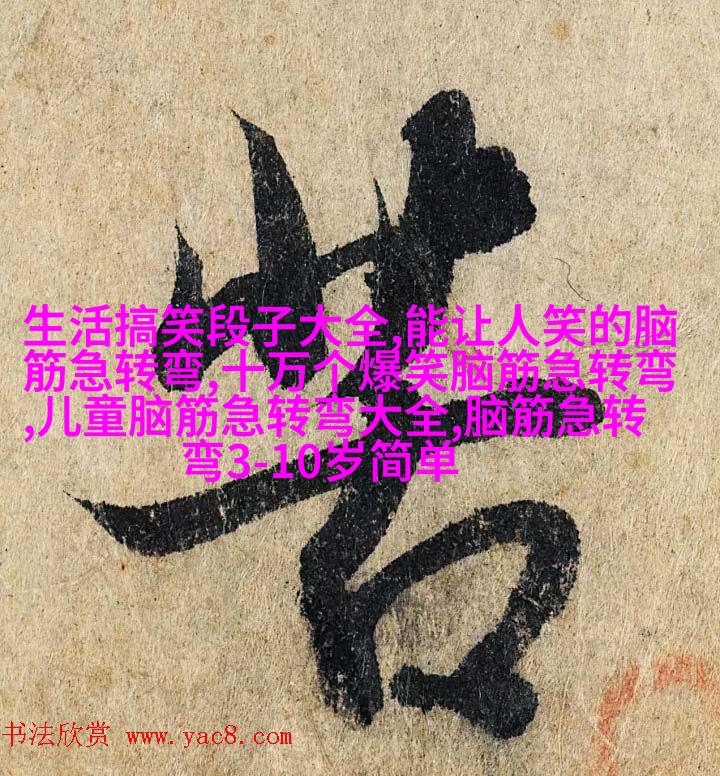 苦
生活搞笑段子大全,能让人笑的脑
筋急转弯,十万个爆笑脑筋急转弯
,儿童脑筋急转弯大全,脑筋急转
弯3-10岁简单
书法欣赏 www.yac8.com